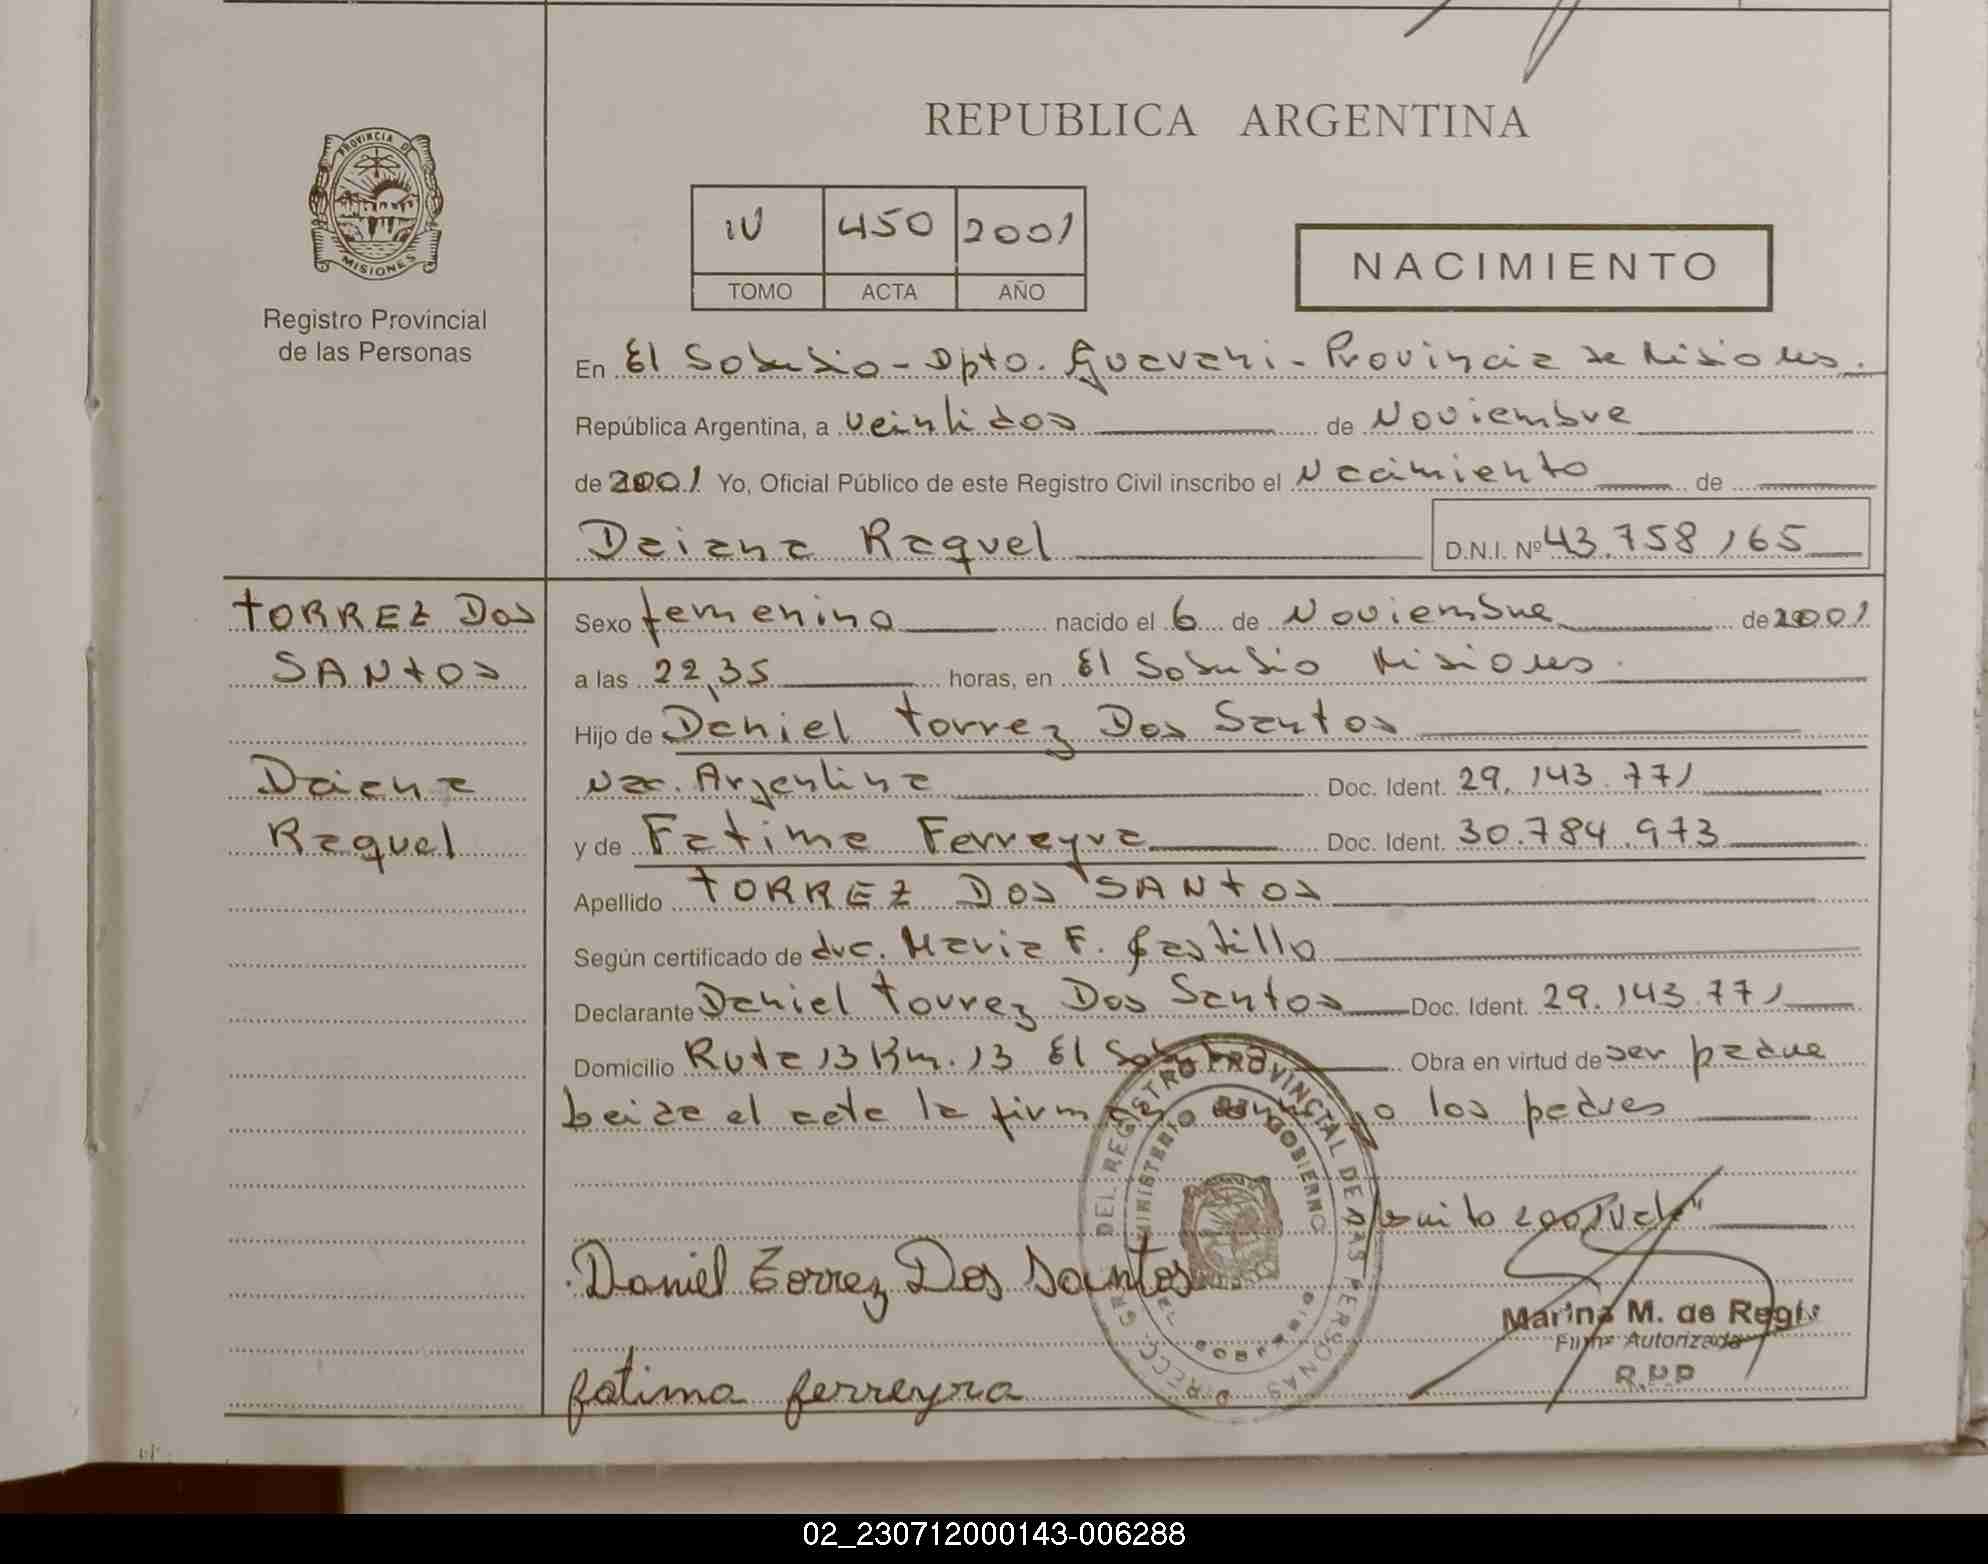 REPUBLICA ARGENTINA
PROVINCIA DE
MISIONES
Registro Provincial
de las Personas
IV 450 2001
TOMO ACTA AÑO
NACIMIENTO
En El Soberbio - Dpto. Guarani - Provincia de Misiones.
República Argentina, a veintidos de Noviembre
de 2001 Yo, Oficial Público de este Registro Civil inscribo el Nacimiento de
Daiana Raquel D.N.I. Nº 43.758,165
TORREZ DOS
SANTOS
Daiana
Raquel
Sexo femenino nacido el 6 de Noviembre de 2001
a las 22,35 horas, en El Soberbio Misiones.
Hijo de Daniel Torrez Dos Santos
Nac. Argentina Doc. Ident. 29.143.771
y de Fatima Ferreyra Doc. Ident. 30.784.973
Apellido TORREZ DOS SANTOS
Según certificado de dra. Maria F. Castillo
Declarante Daniel Torrez Dos Santos Doc. Ident. 29.143.771
Domicilio Ruta 13 Km. 13 El Soberbio Obra en virtud de ser padre
leida el acta la firman los padres
DIRECC. GRAL. DEL REGISTRO PROVINCIAL DE LAS PERSONAS
MINISTERIO DE GOBIERNO
Daniel Torrez Dos Santos
fatima ferreyra
Marina M. de Regis
Firma Autorizada
R.P.P
02_230712000143-006288